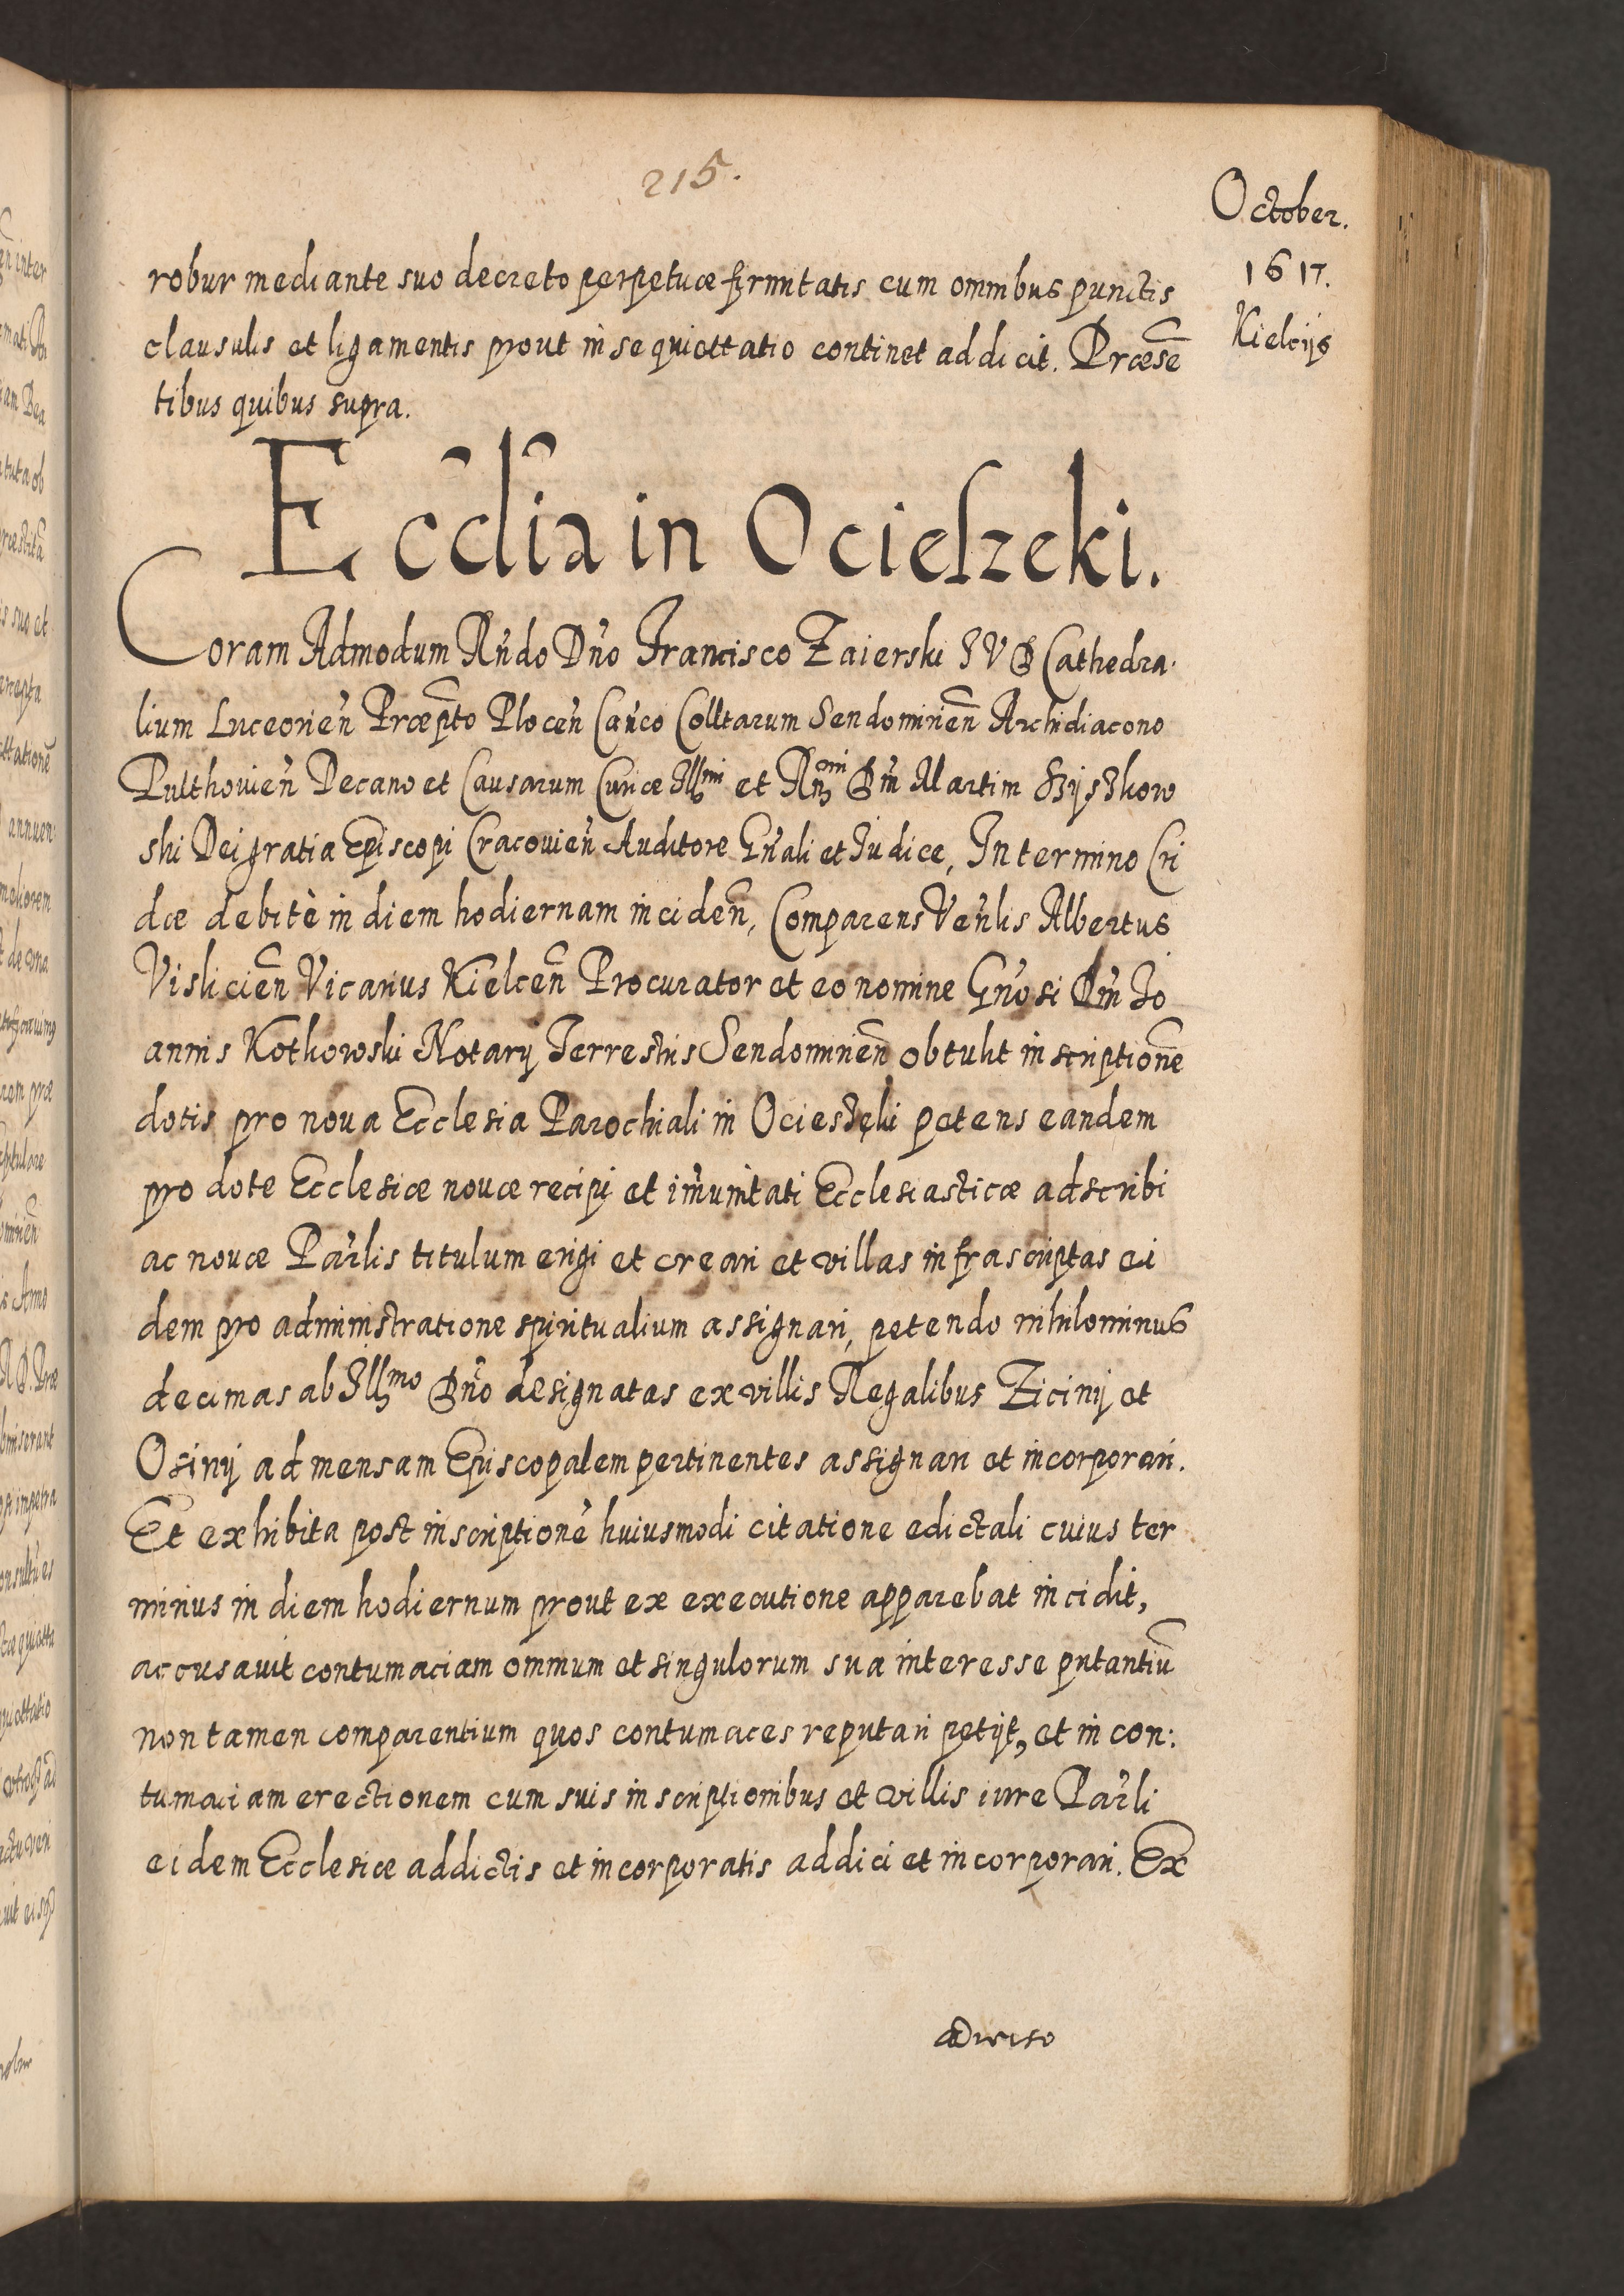 215.
October.
1617.
Kielcijs
robur mediante suo decreto perpetuæ firmitatis cum omnibus punctis
clausulis et ligamentis prout in se quiettatio continet addicit. Præsẽ
tibus quibus supra.
Eccľia in Ocieszeki.
Coram Admodum Rñdo Dño Francisco Zaierski I V D Cathedra
lium Luceorieñ Præpto Ploceñ Cañco Colltarum Sendomirieñ Archidiacono
Pulthovieñ Decano et Causarum Curiæ Illmi et Rñmi Dñi Martini Szyszkow
ski Dei gratia Episcopi Cracovieñ Auditore Gñali et Iudice, In termino Cri
dæ debitè in diem hodiernam incideñ, Comparens Veñlis Albertus
Vislicieñ Vicarius Kielceñ Procurator et eo nomine Gñosi Dñi Jo
annis Kotkowski Notarij Terrestris Sendomirieñ obtulit inscriptionẽ
dotis pro nova Ecclesia Parochiali in Ociesęki petens eandem
pro dote Ecclesiæ novæ recipi et im̃unitati Ecclesiasticæ adscribi
ac novæ Par̃lis titulum erigi et creari et villas infrascriptas ei
dem pro administratione spiritualium assignari, petendo nihilominus
decimas ab Illmo Dño designatas ex villis Regalibus Ziciny et
Osiny ad mensam Episcopalem pertinentes assignari et incorporari.
Et exhibita post inscriptionẽ huiusmodi citatione edictali cuius ter
minus in diem hodiernum prout ex executione apparebat incidit,
accusavit contumaciam omnium et singulorum sua interesse putantiũ
non tamen comparentium quos contumaces reputari petijt, et in con:
tumaciam erectionem cum suis inscriptionibus et villis iure Par̃li
eidem Ecclesiæ addictis et incorporatis addici et incorporari. Ex